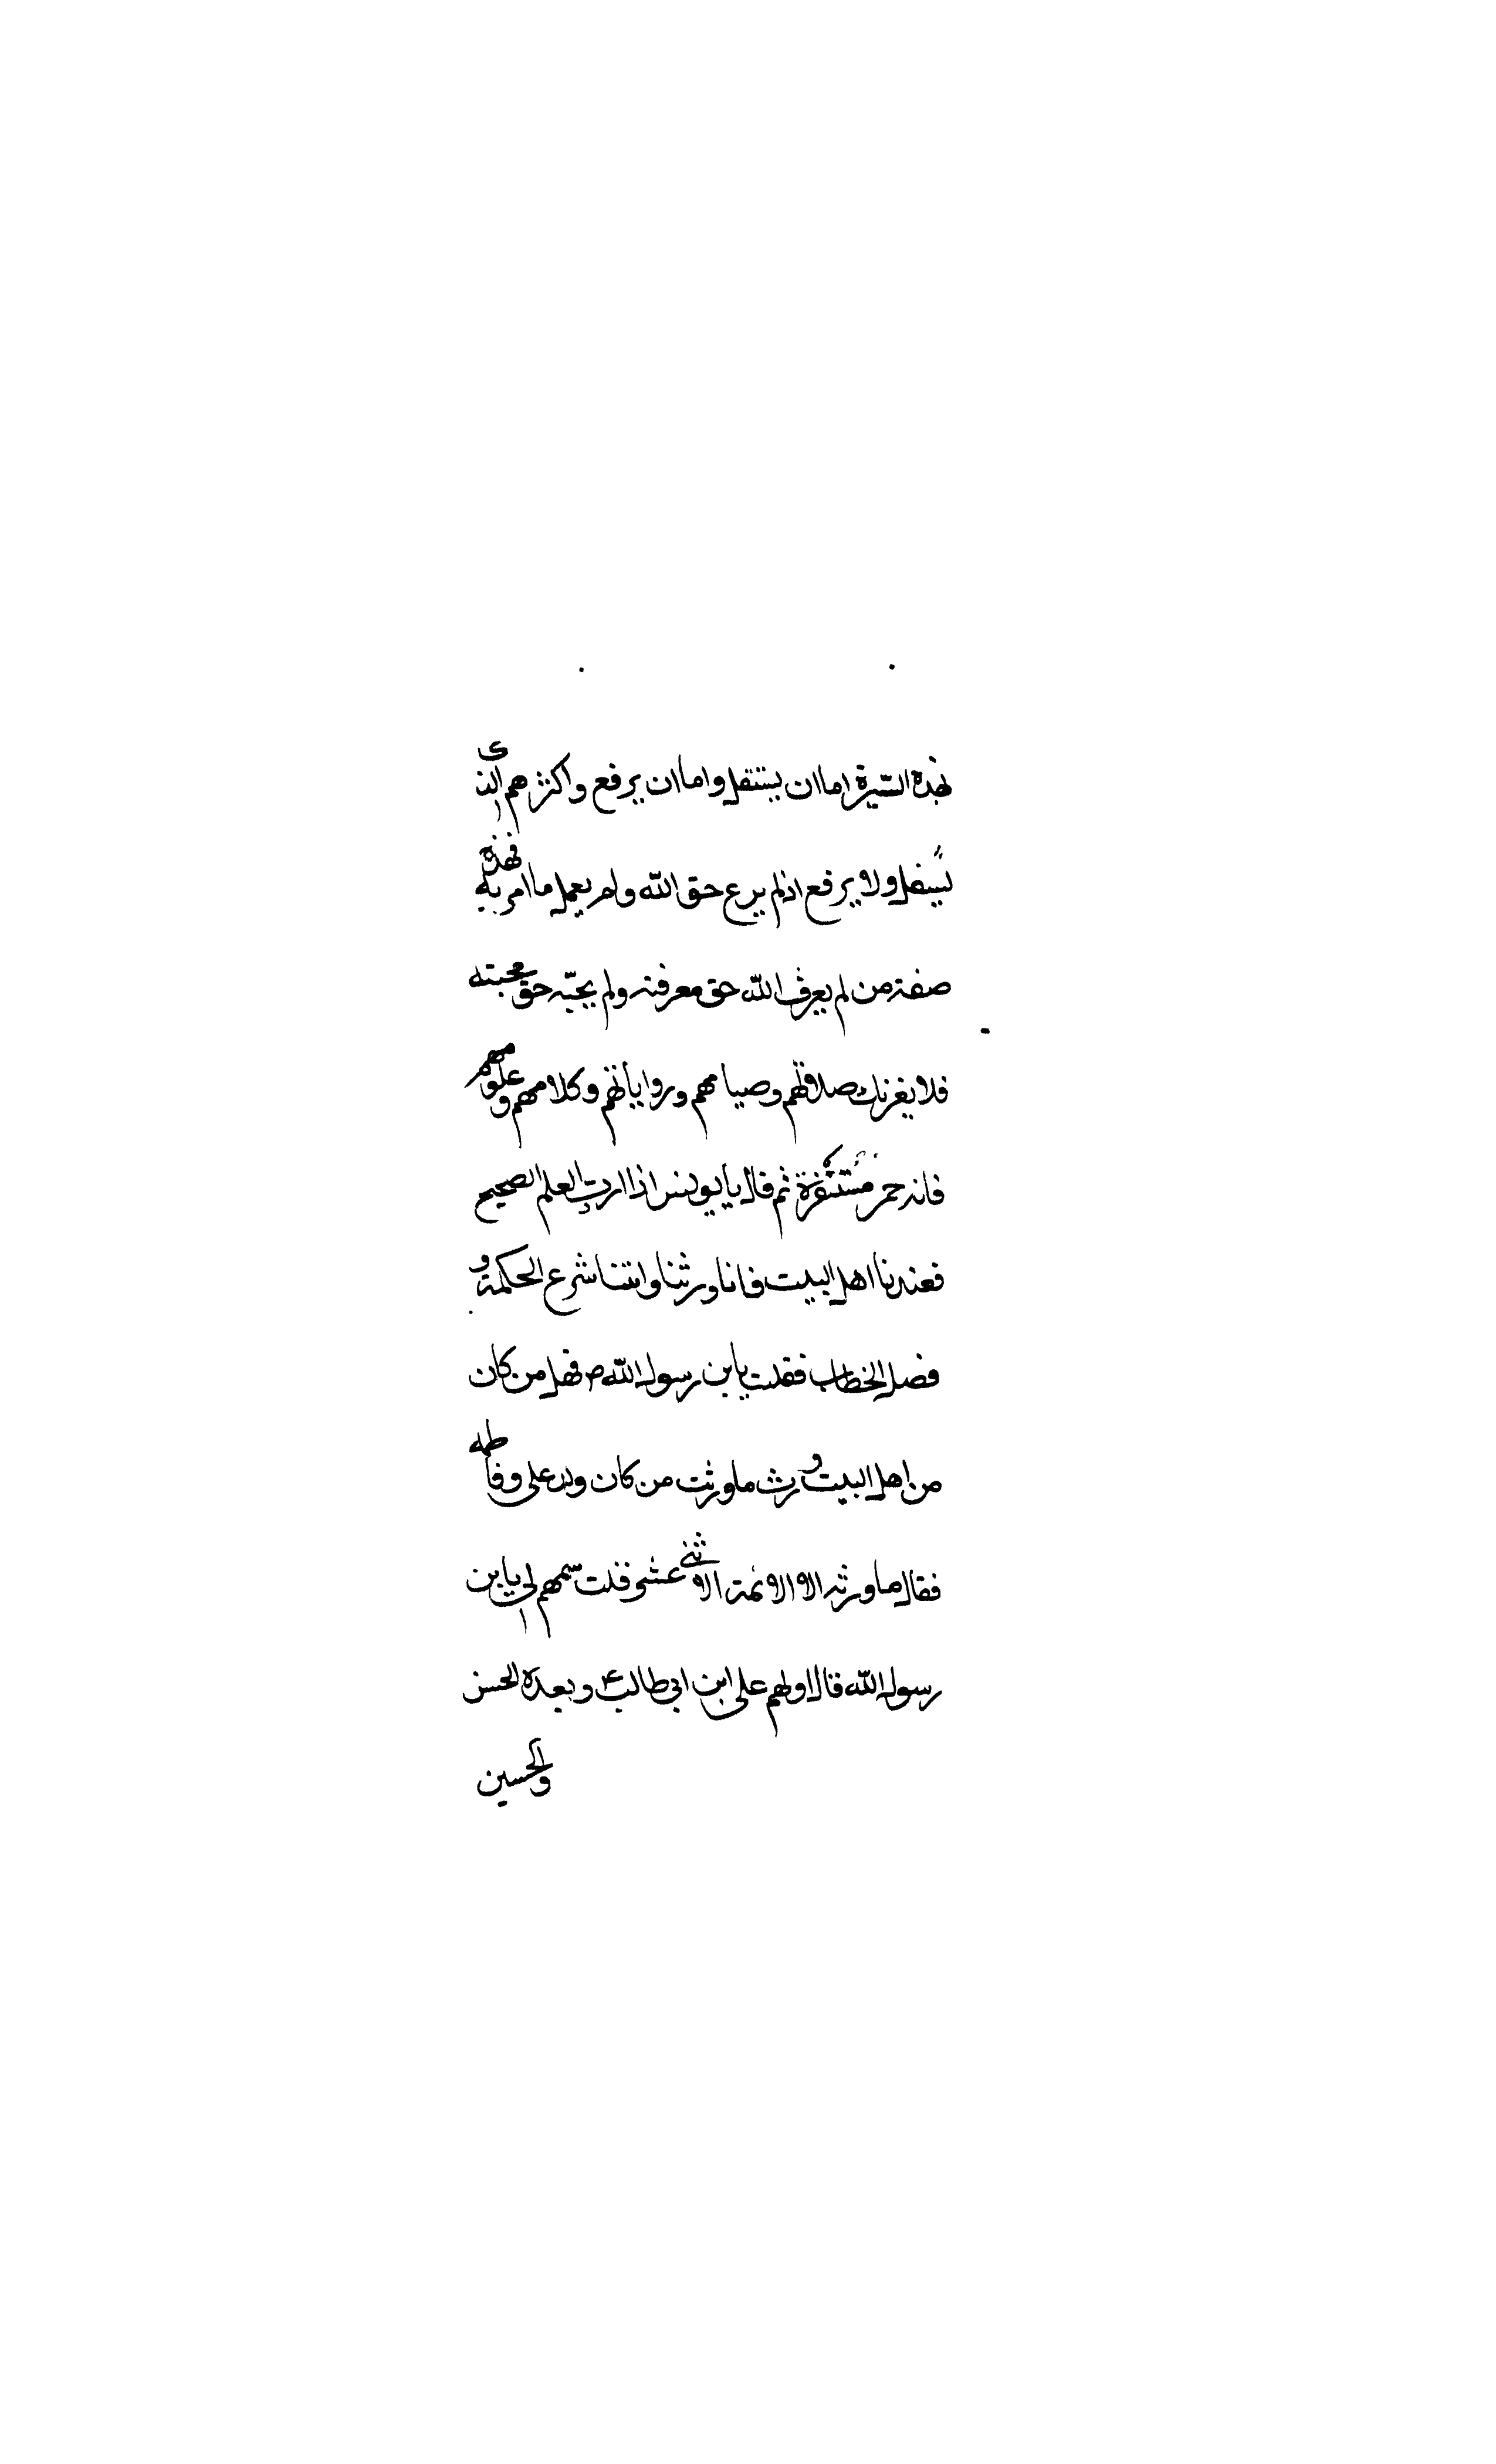 بهذه السّيرة اما ان يستفل واما ان يرفع واكثرهم الذى
يسفل ولا يرفع اذ لم يرع حق الله ولم يعمل ما امر به فهذه
صفة من لم يعرف الله حق معرفته ولم يحبّه حق محبته
فلا يغرنك صلاتهم وصيامهم ورواياتهم وكلامهم وعلومهم
فانه حمر مُسْتَنْفرة ثم قال يا يونس اذا اردت العلم الصحيح
فعندنا اهل البيت فانا ورثنا واتتنا شرع الحكمة و
فصل الخطاب فقلت يابن رسول الله ص فهل من كان
من اهل البيت ورث ما ورثت من كان ولد على وفاطمه
فقال ما ورثه الا الائمة الاثنى عشر فقلت سمهم لي يا بن
رسول الله قال اولهم على ابن ابي طالب ع وبعده الحسن
والحسين